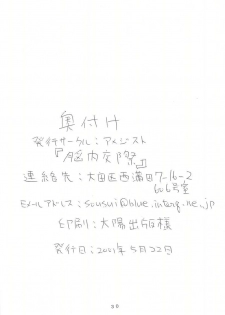 奥付け
発行サークル:アメジスト
『脳内交際』
連絡先:大田区西蒲田7-16-2
606号室
Eメールアドレス:sousui@blue.interq.ne.jp
印刷:大陽出版様
発行日:2001年5月22日
20